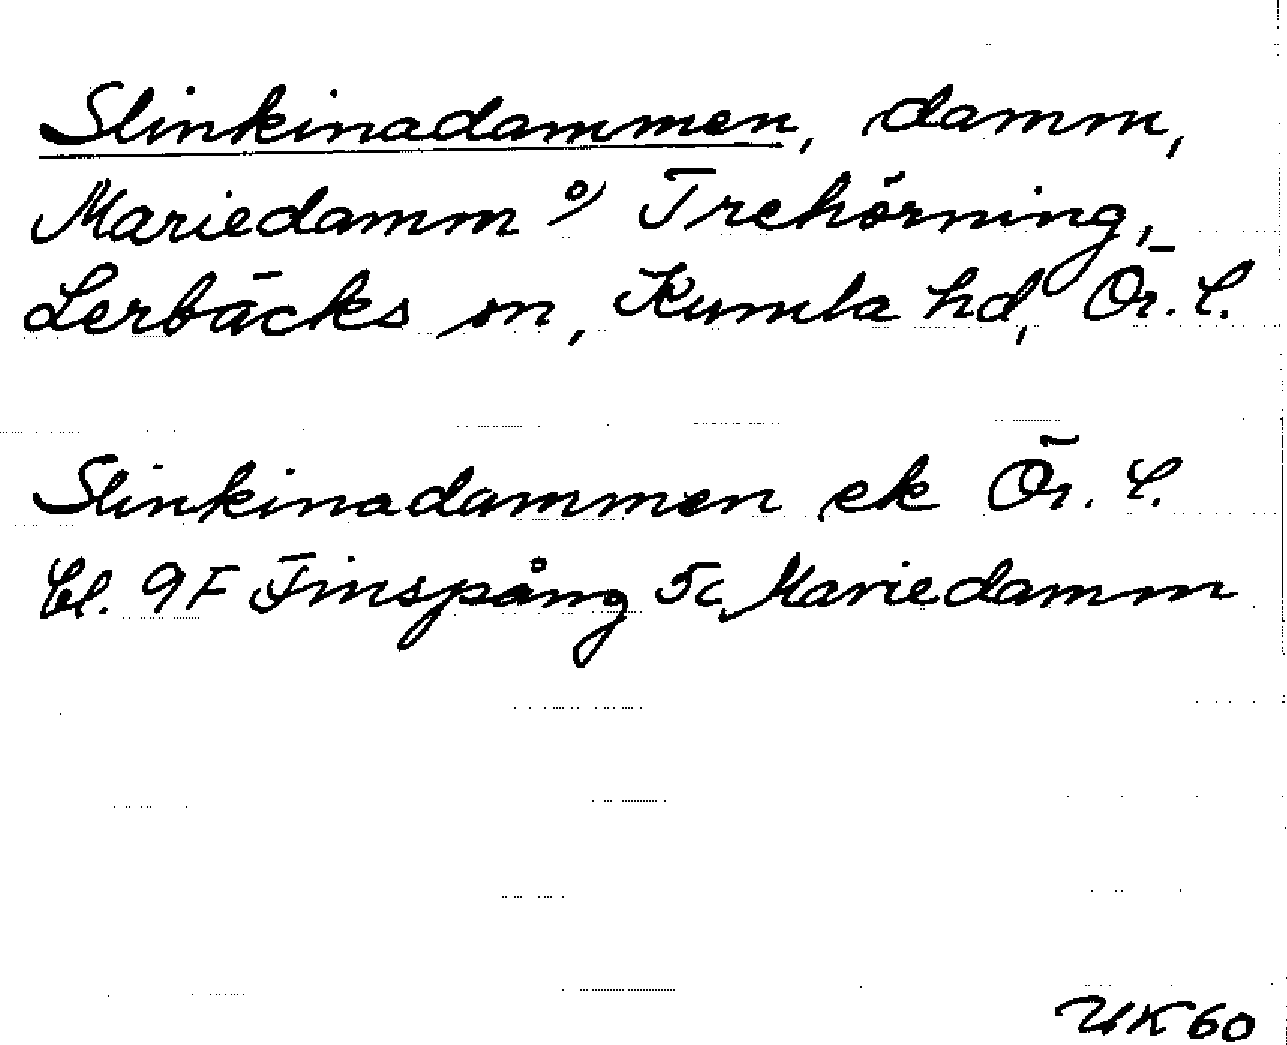 Slinkinadammen, damm,
Mariedamm o/ Trehörning,
Lerbäcks sn, Kumla hd, Ör. l.
Slinkinadammen ek Ör. l.
bl. 9F Finspång 5c Mariedamm
UK 60